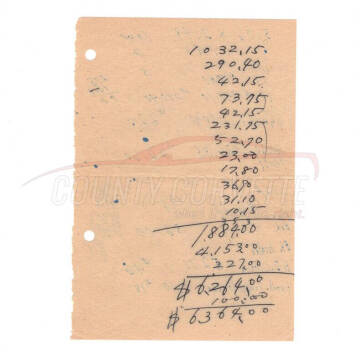 1032.15
290.40
42.15
73.75
42.15
231.75
52.70
23.00
17.80
36.80
31.10
10.15
1884.00
4,153.00
327.00
$6,264.00
100.00
$6364.00
COUNTY CORVETTE